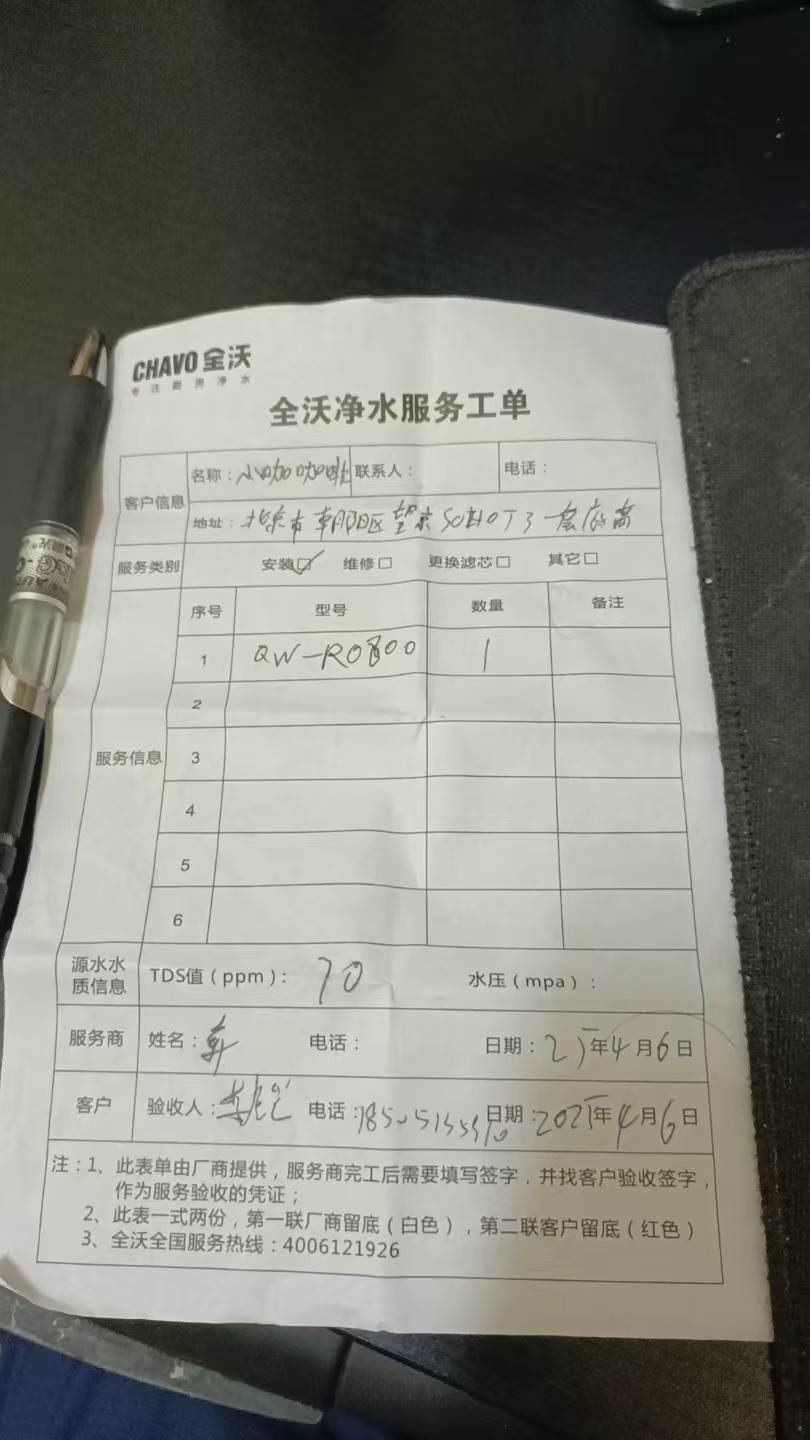 CHAVO 全沃
专注厨房净水
全沃净水服务工单
客户信息 名称：小咖咖啡 联系人： 电话：
地址：北京市朝阳区望京SOHOT3一层底商
服务类别 安装☑ 维修□ 更换滤芯□ 其它□
服务信息 序号 型号 数量 备注
1 QW-RO800 1
2
3
4
5
6
源水水质信息 TDS值（ppm）： 70 水压（mpa）：
服务商 姓名： 电话： 日期：25年4月6日
客户 验收人： 电话： 日期：2025年4月6日
注：1、此表单由厂商提供，服务商完工后需要填写签字，并找客户验收签字，
作为服务验收的凭证；
2、此表一式两份，第一联厂商留底（白色），第二联客户留底（红色）
3、全沃全国服务热线：4006121926